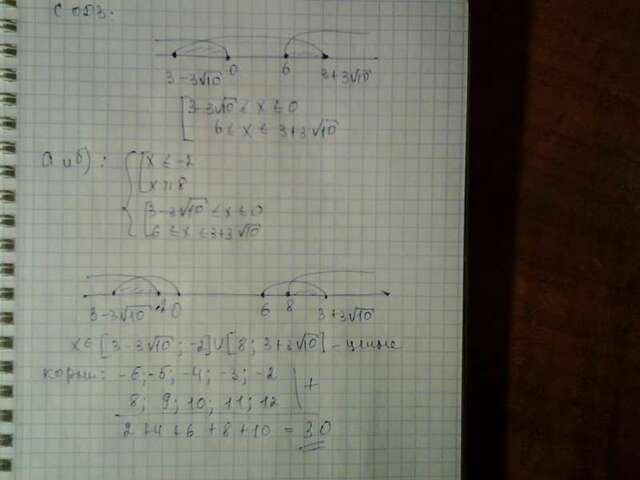 с ОДЗ.
3-3√10 0 6 3+3√10
[ 3-3√10 ≤ x ≤ 0
6 ≤ x ≤ 3+3√10
а и б) : { [ x ≤ -2
x ≥ 8
[ 3-3√10 ≤ x ≤ 0
6 ≤ x ≤ 3+3√10
3-3√10 -2 0 6 8 3+3√10
x∈[3-3√10; -2]∪[8; 3+3√10] - целые
корни: -6; -5; -4; -3; -2
8; 9; 10; 11; 12 +
2+4+6+8+10 = 30